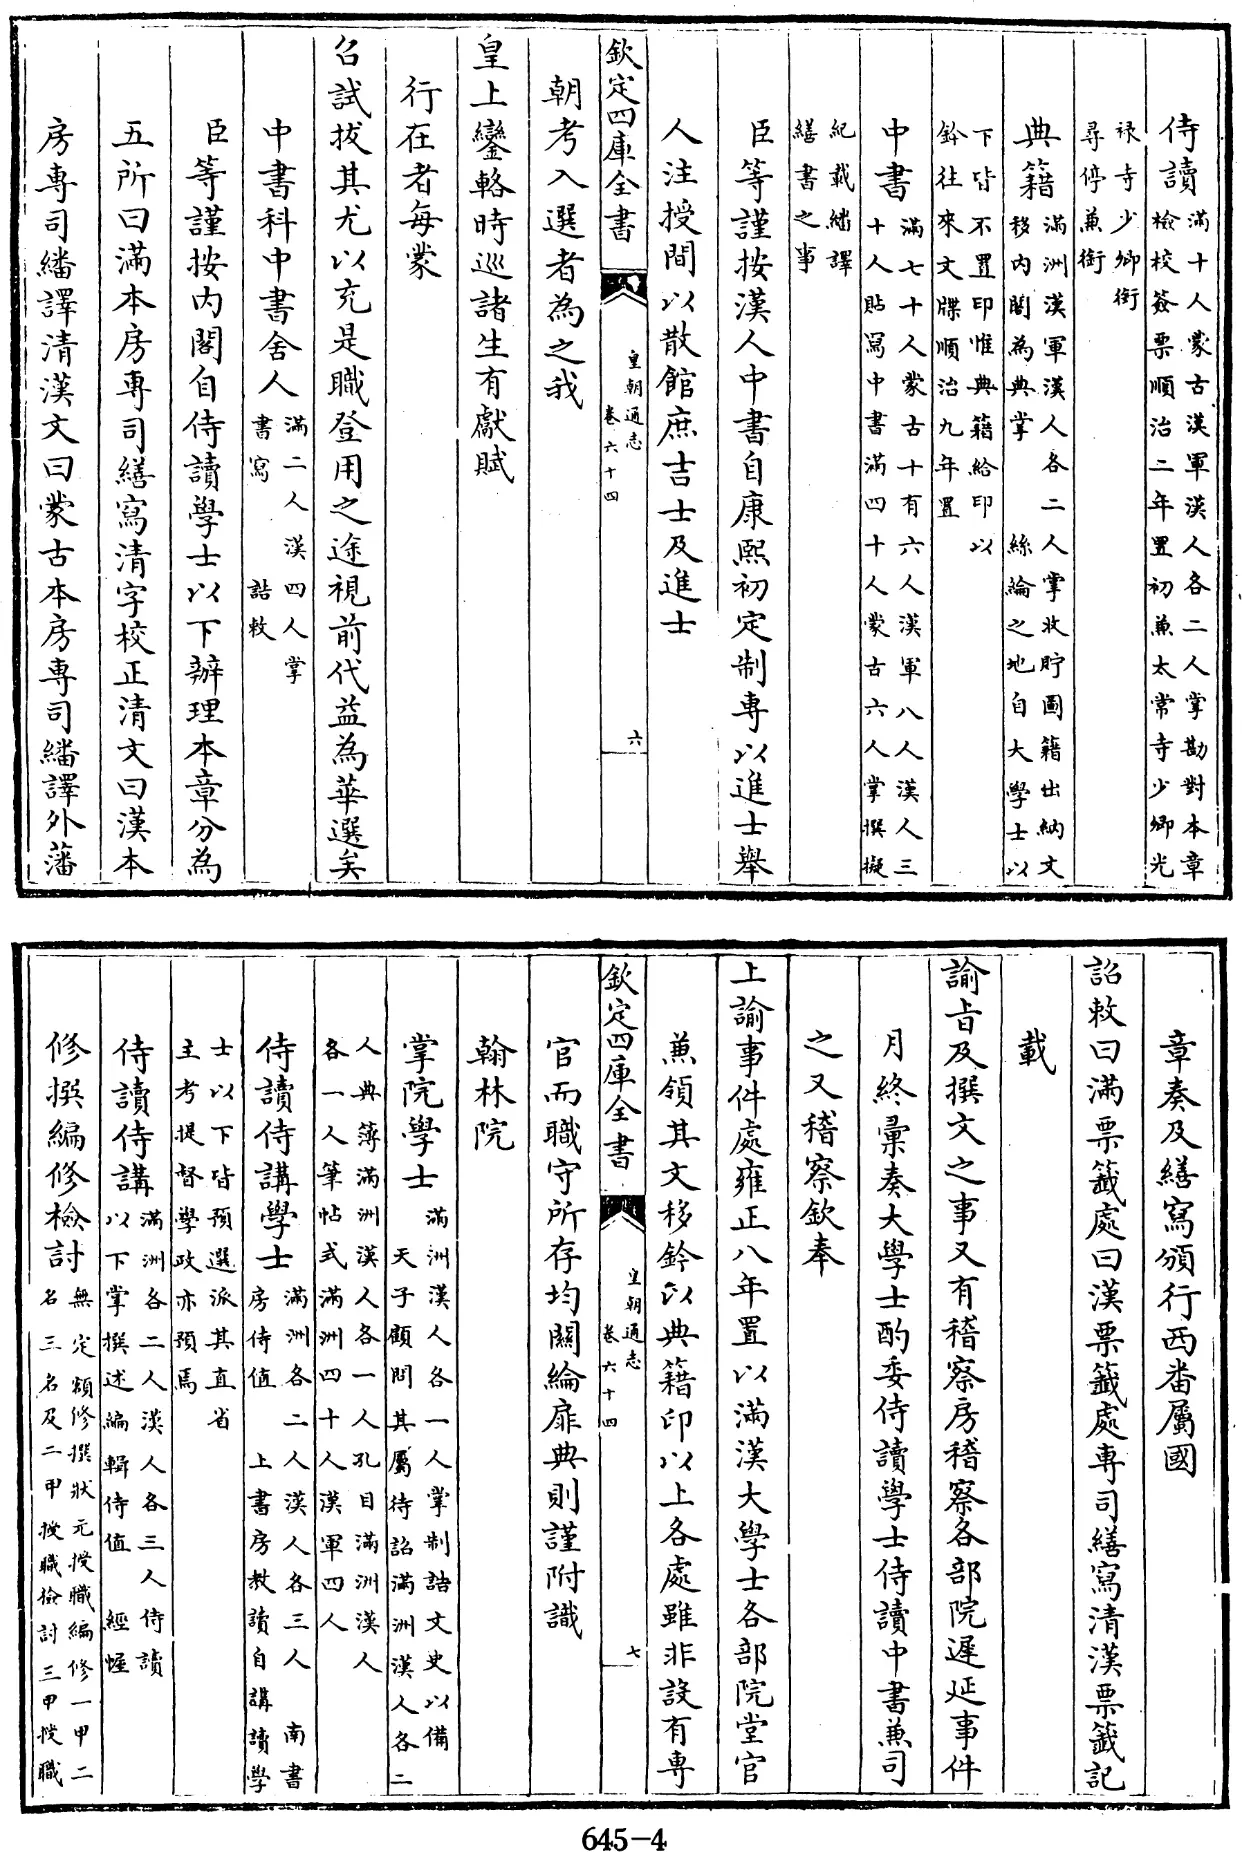 侍讀滿十人蒙古漢軍漢人各二人掌勘對本章
檢校簽票順治二年置初兼太常寺少卿光
祿寺少卿銜
尋停兼銜
典籍滿洲漢軍漢人各二人掌收貯圖籍出納文
移內閣為典掌 絲綸之地自大學士以
下皆不置印惟典籍給印以
鈐往來文牒順治九年置
中書滿七十人蒙古十有六人漢軍八人漢人三
十人貼寫中書滿四十人蒙古六人掌撰擬
紀載繙譯
繕書之事
臣等謹按漢人中書自康熙初定制專以進士舉
人注授間以散館庶吉士及進士
欽定四庫全書 皇朝通志 卷六十四 六
朝考入選者為之我
皇上鑾輅時巡諸生有獻賦
行在者每蒙
召試拔其尤以充是職登用之途視前代益為華選矣
中書科中書舍人滿二人漢四人掌
書寫 誥敕
臣等謹按內閣自侍讀學士以下辦理本章分為
五所曰滿本房專司繕寫清字校正清文曰漢本
房專司繙譯清漢文曰蒙古本房專司繙譯外藩
章奏及繕寫頒行西番屬國
詔敕曰滿票籤處曰漢票籤處專司繕寫清漢票籤記
載
諭旨及撰文之事又有稽察房稽察各部院遲延事件
月終彙奏大學士酌委侍讀學士侍讀中書兼司
之又稽察欽奉
上諭事件處雍正八年置以滿漢大學士各部院堂官
兼領其文移鈐以典籍印以上各處雖非設有專
欽定四庫全書 皇朝通志 卷六十四 七
官而職守所存均關綸扉典則謹附識
翰林院
掌院學士滿洲漢人各一人掌制誥文史以備
天子顧問其屬待詔滿洲漢人各二
人典簿滿洲漢人各一人孔目滿洲漢人
各一人筆帖式滿洲四十人漢軍四人
侍讀侍講學士滿洲各二人漢人各三人 南書
房侍值 上書房教讀自講讀學
士以下皆預選派其直省
主考提督學政亦預焉
侍讀侍講滿洲各二人漢人各三人侍讀
以下掌撰述編輯侍值 經幄
修撰編修檢討無定額修撰狀元授職編修一甲二
名三名及二甲授職檢討三甲授職
645-4